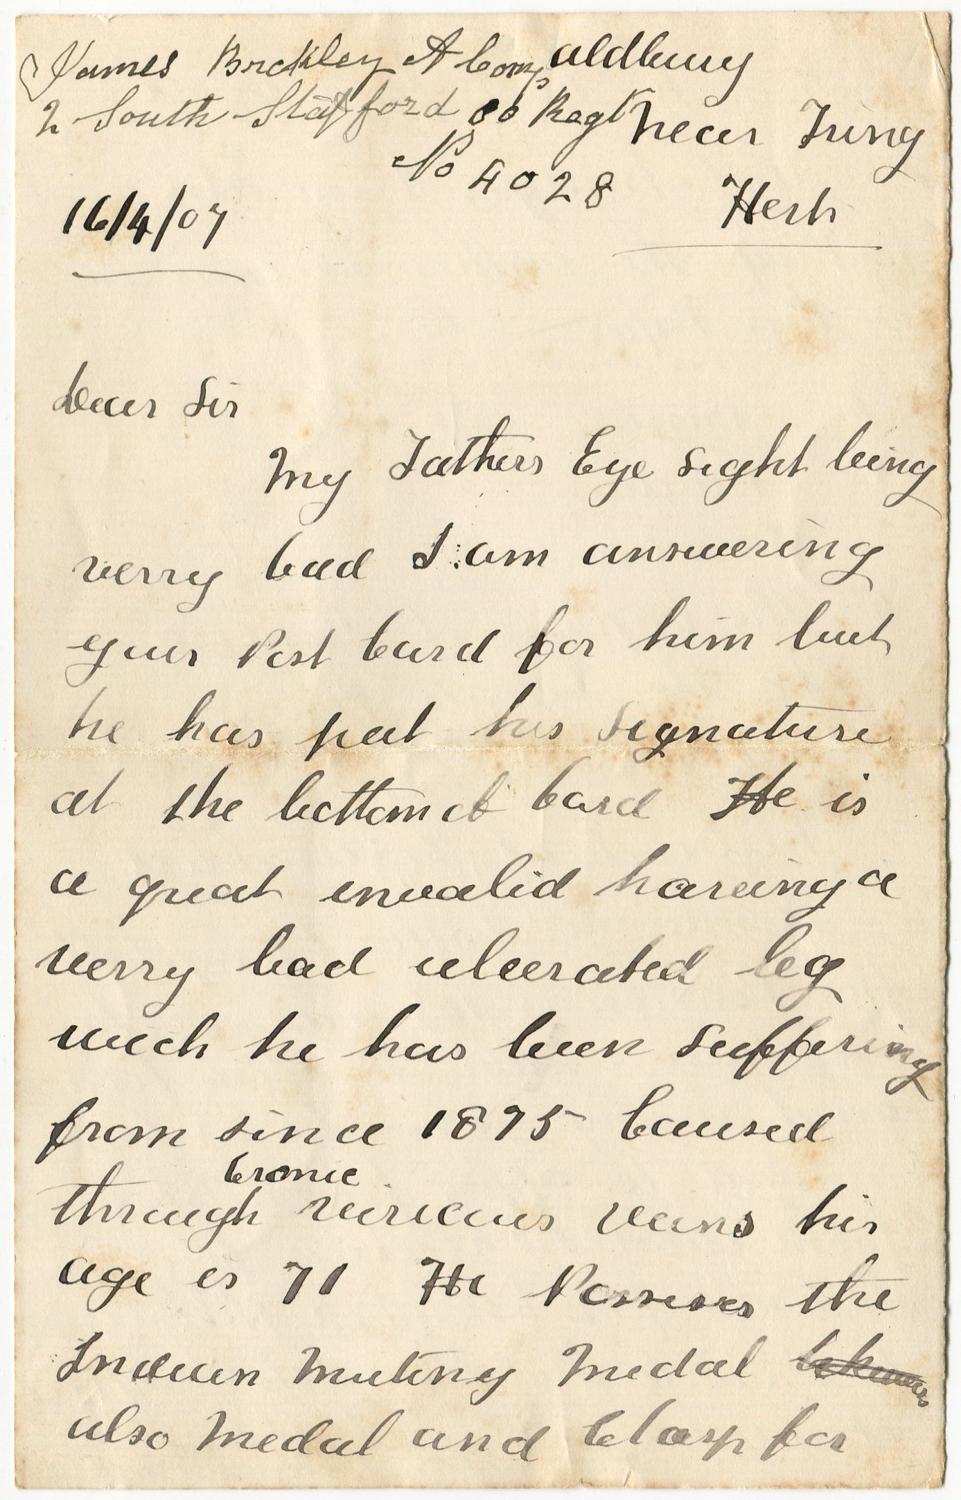 James Brckley A Comp
2 South Stafford Regt
No 4028
aldbury
near Tring
Herts
16/4/07
Dear Sir
My Fathers Eye sight being
verry bad I am answering
your Post Card for him but
he has put his signature
at the bottom of Card He is
a great invalid haveing a
verry bad ulcerated leg
wich he has been suffering
from since 1875 Caused
Cronic
through viricous veins his
age is 71 He Posseses the
Indian Mutiny Medal
also Medal and Clasp for